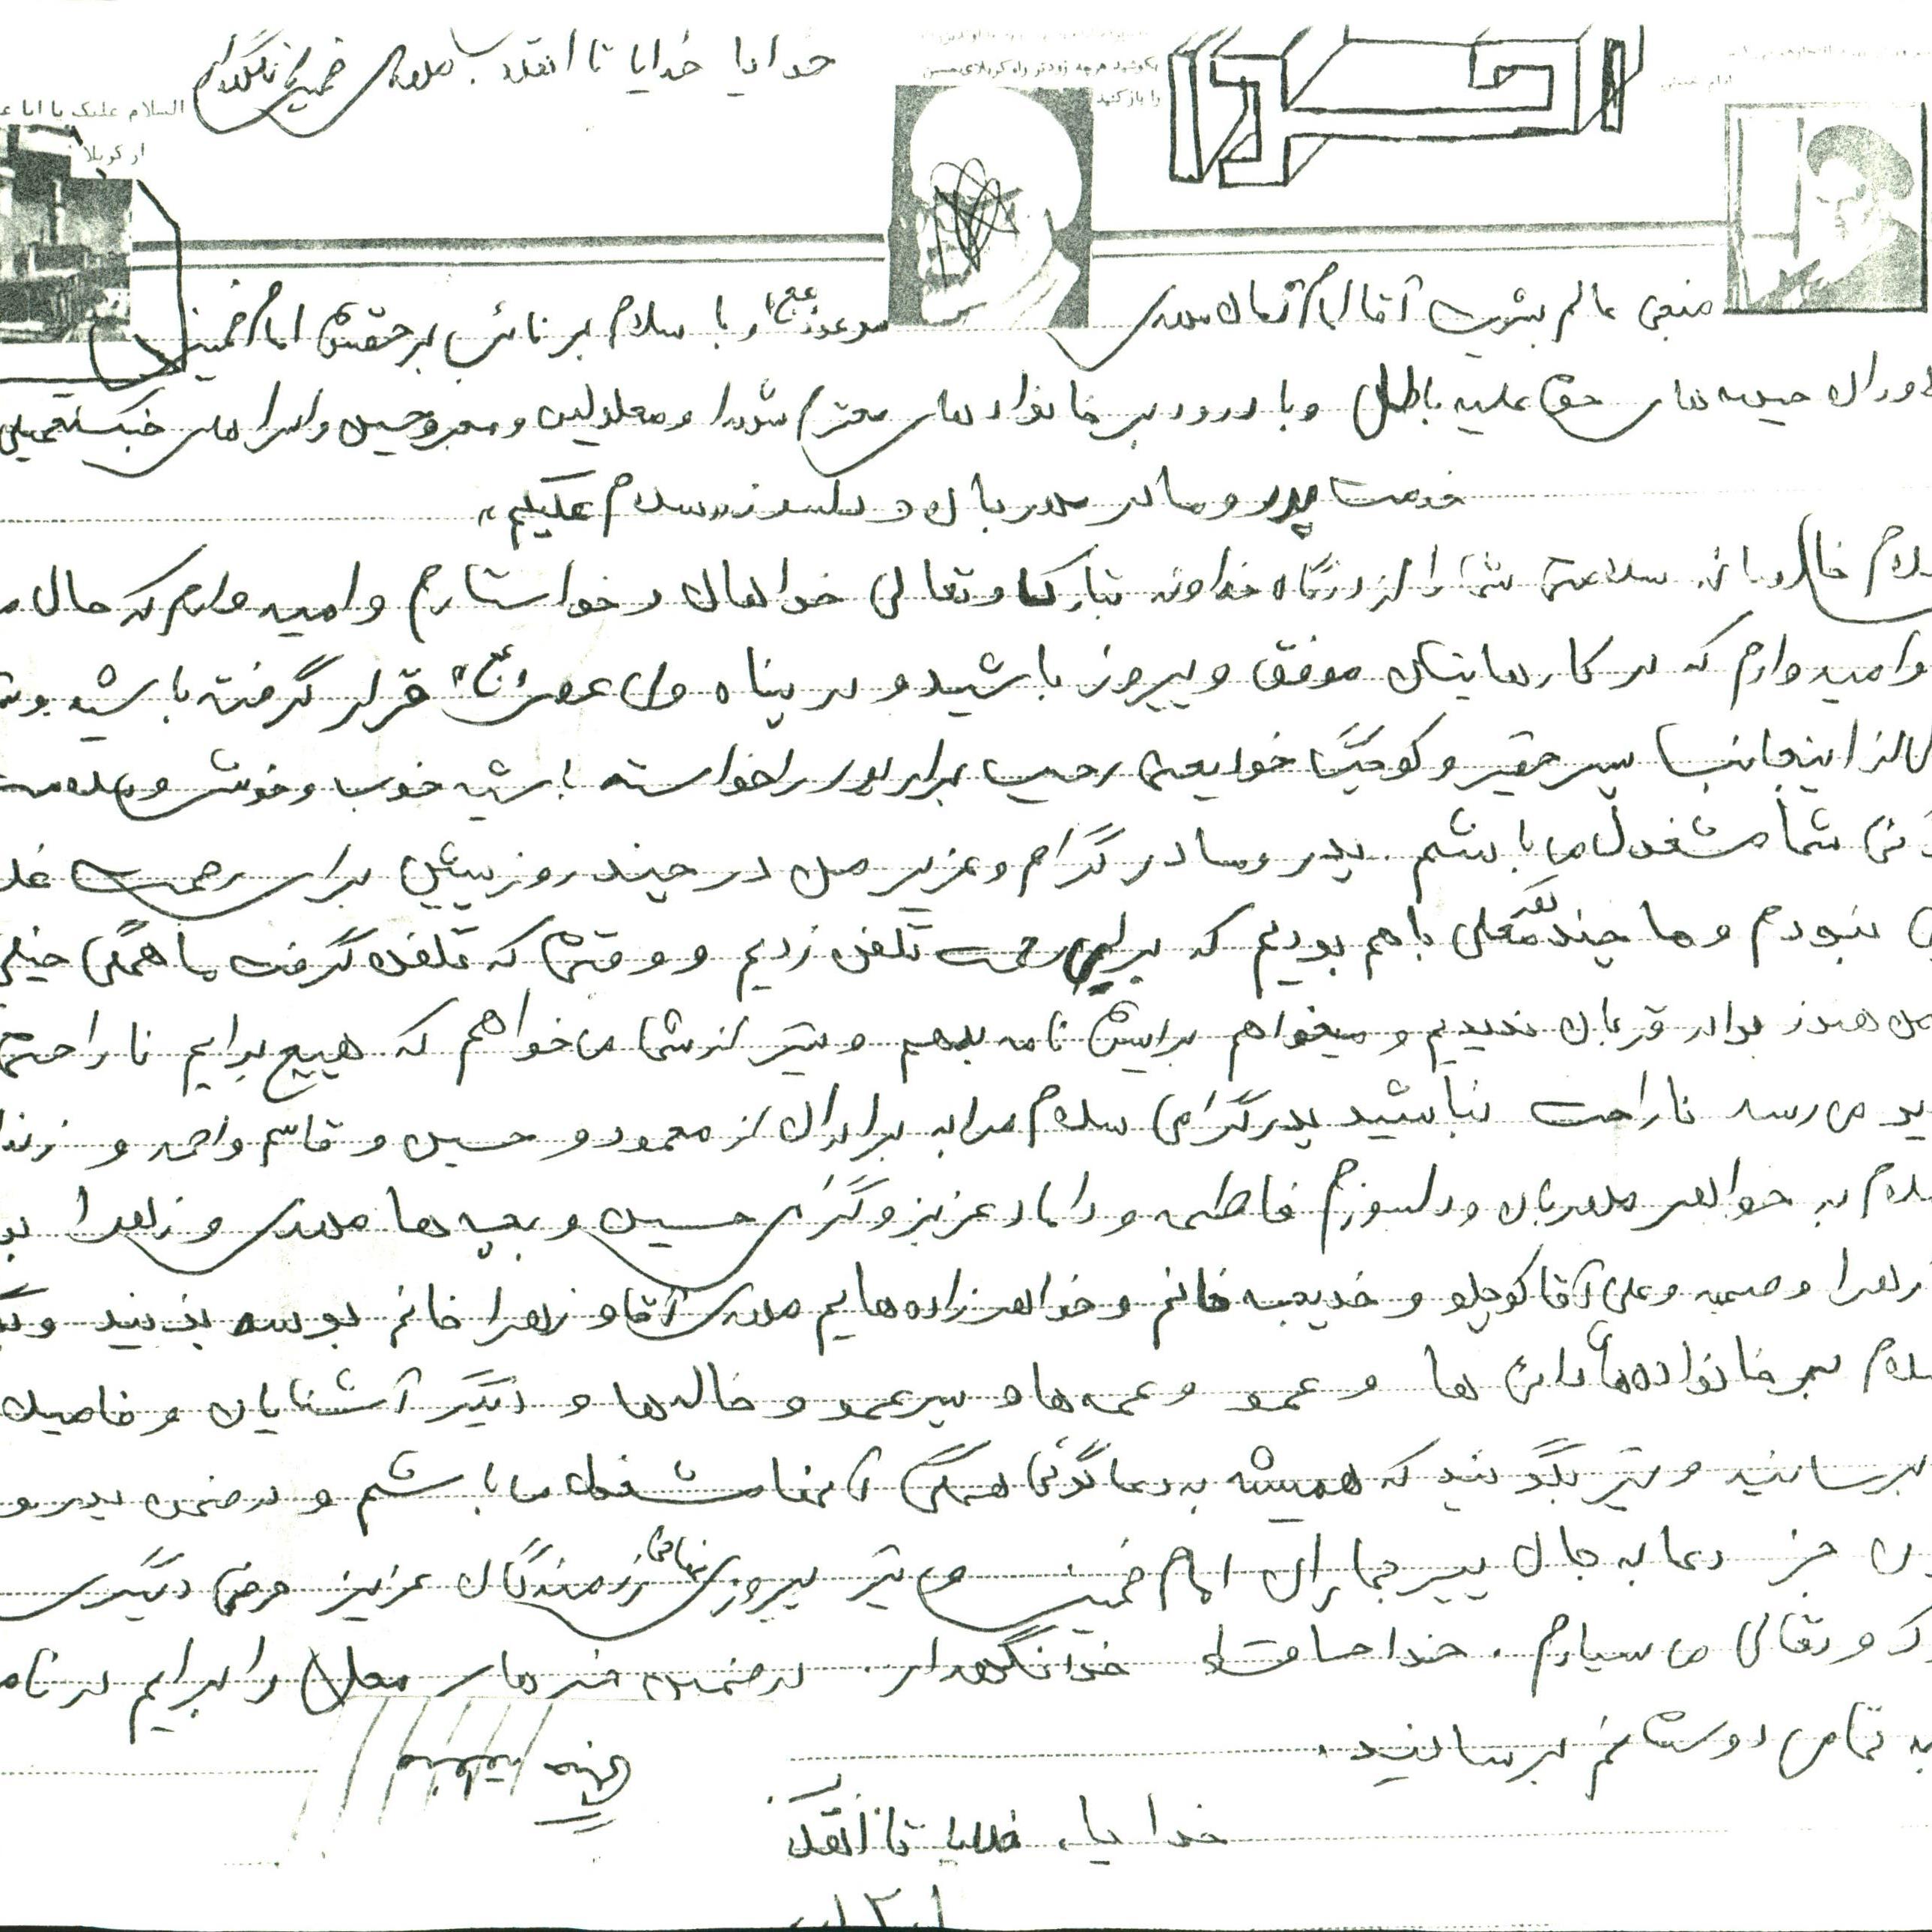 خدایا خدایا تا انقلاب مهدی خمینی را نگهدار
السلام علیک یا ابا ع
از کربلا
بکوشید هرچه زودتر راه کربلای حسین
را باز کنید
امام خمینی
منجی عالم بشریت آقا امام زمان مهدی موعود (عج) و با سلام بر نائب بر حقش امام خمینی
حق علیه باطل و با درود بر خانواده های محترم شهدا و معلولین و مجروحین و اسرا های جنگ تحمیلی
خدمت پدر و مادر مهربان و دلسوز سلام علیکم
سلام سلامتی شما را از درگاه خداوند تبارک و تعالی خواهان و خواستارم و امید وارم که حال
و امید وارم که در کارهایتان موفق و پیروز باشید و در پناه ولی عصر (عج) قرار گرفته باشید و
از اینجانب پسر حقیر و کوچک خود یعنی رجب برار پور را خواسته باشید خوب و خوش و سلامت
شما مشغول می باشم. پدر و مادر گرام و عزیز من در چند روز پیش برای رحمت
نبودم و ما چند نفر محلی با هم بودیم که برای رحمت تلفن زدیم و وقتی که تلفن گرفت ما همگی خیلی
من هنوز برادر قربان ندیدیم و میخواهم برایش نامه بدهم و نیز از شما می خواهم که هیچ برایم ناراحتی
می رسد ناراحت نباشید پدر گرامی سلام مرا به برادران از محمود و حسین و قاسم و احمد و
سلام به خواهر مهربان و دلسوزم فاطمه و داماد عزیز و گرامی حسین و بچه ها مهدی و زهرا
زهرا و صمیه و علی آقا کوچلو و خدیجه خانم و خواهر زاده هایم مهدی آقا و زهرا خانم بوسه بزنید و
سلام بر خانواده های دائی ها و عمو و عمه ها و پسر عمو و خاله ها و دیگر آشنایان و فامیلان
برسانید و نیز بگوئید که همیشه به دعا گوئی همگی آنها مشغول می باشم و در ضمن پدر و
جز دعا به جان پیر جماران امام خمینی و نیز پیروزی نهائی رزمندگان عزیز عرضی دیگری
و تعالی می سپارم. خدا حافظ خدا نگهدار. در ضمن خبر های محل را برایم در نامه
به تمامی دوستانم برسانید.
خدایا، خدایا تا انقلاب